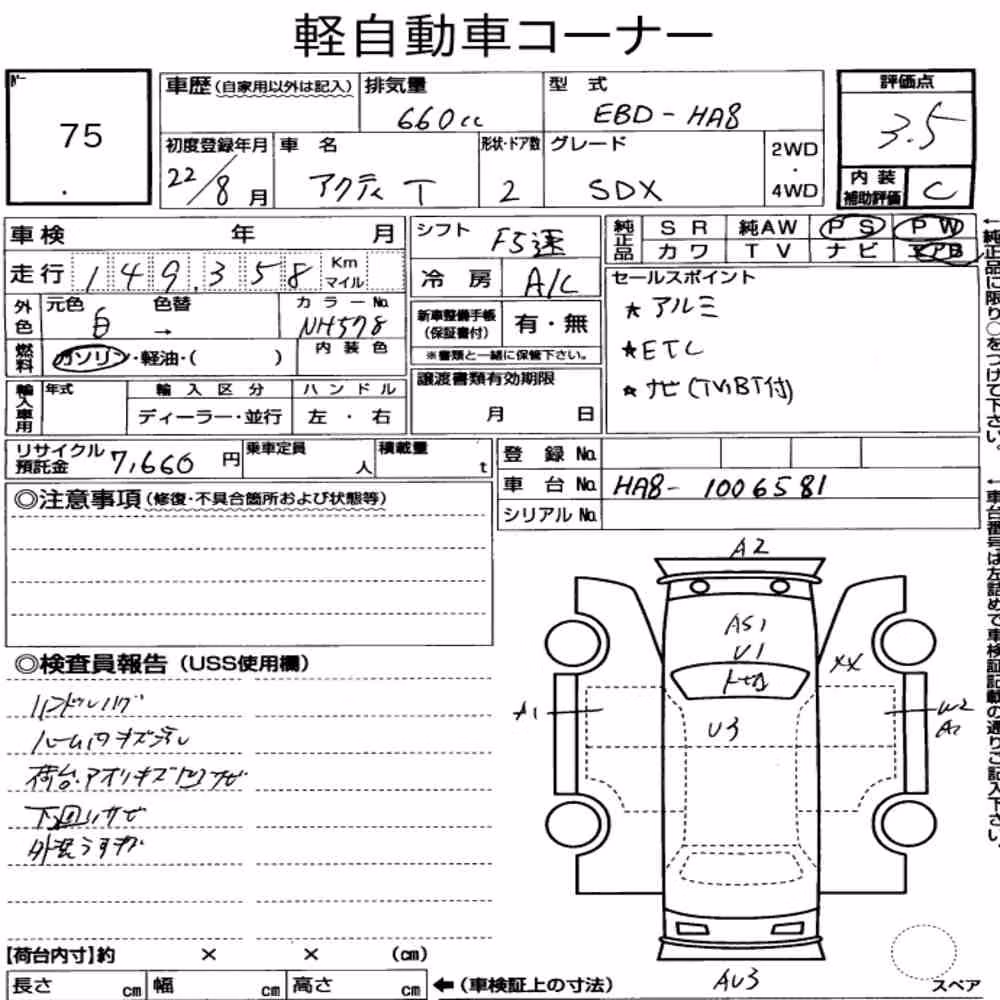 軽自動車コーナー
75
車歴(自家用以外は記入) 排気量 660cc 型式 EBD-HA8 評価点 3.5
初度登録年月 22/8月 車名 アクティ T 形状・ドア数 2 グレード SDX 2WD・4WD 内装補助評価 C
車検 年 月
走行 149,358 Km マイル
外色 元色 白 色替 → カラーNo. NH578
燃料 ガソリン・軽油・( ) 内装色
輸入車用 年式 輸入区分 ディーラー・並行 ハンドル 左・右
シフト F5速
冷房 A/C
新車整備手帳(保証書付) 有・無
※書類と一緒に保管下さい。
譲渡書類有効期限
月 日
純正品 SR 純AW PS PW
カワ TV ナビ エアB
セールスポイント
★アルミ
★ETC
★ナビ(TV,BT付)
←純正品に限り○をつけて下さい。
リサイクル預託金 7,660円 乗車定員 人 積載量 t
登録No.
車台No. HA8-1006581
シリアルNo.
←車台番号は左詰めで車検証記載の通りご記入下さい。
◎注意事項(修復・不具合箇所および状態等)
◎検査員報告(USS使用欄)
ハンドルハゲ
ルーム内キズ汚レ
下回りサビ
A2
AS1
U1
XX
A1
U3
W2
AU3
スペア
【荷台内寸】約 × × (cm)
長さ cm 幅 cm 高さ cm ←(車検証上の寸法)